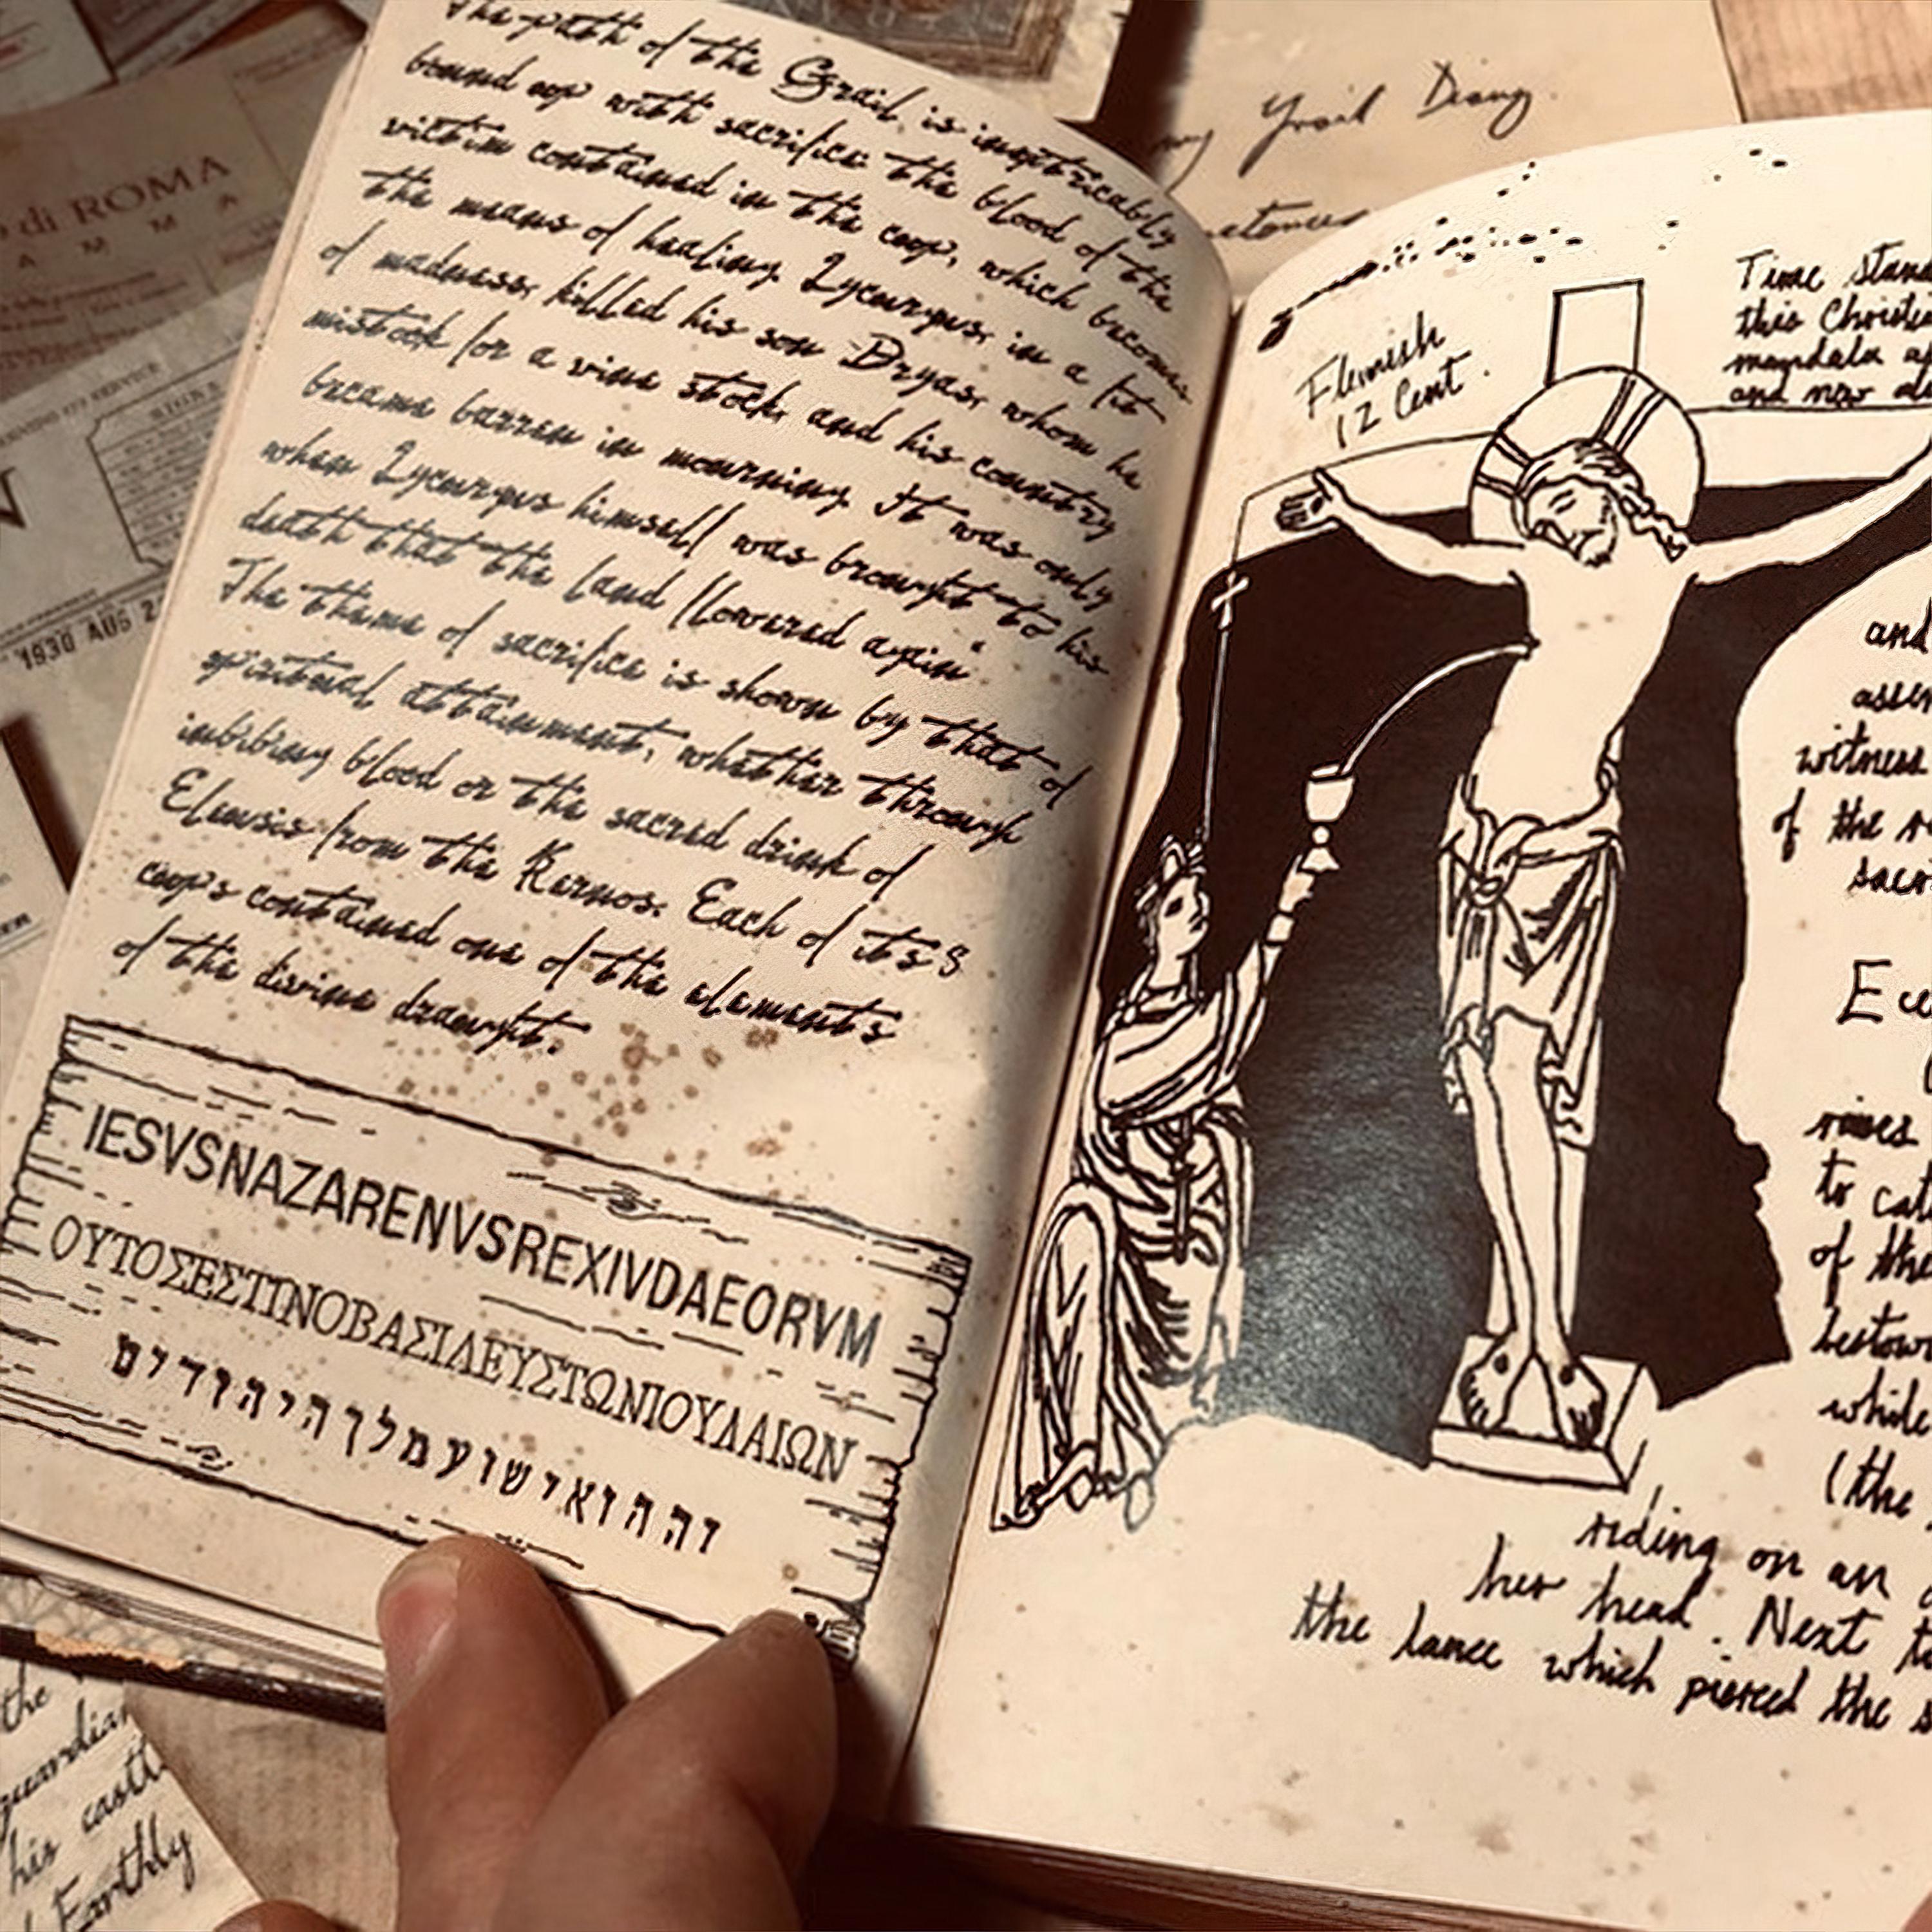 The path of the Grail, is inextricably
bound up with sacrifice: the blood of the
victim contained in the cup, which becomes
the means of healing. Lycurgus, in a fit
of madness, killed his son Dryas, whom he
mistook for a vine stock, and his country
became barren in mourning. It was only
when Lycurgus himself was brought to his
death that the land flowered again".
The theme of sacrifice is shown by that of
spiritual attainment, whether through
imbibing blood or the sacred drink of
Eleusis from the Kernos. Each of its 9
cups contained one of the elements
of the divine draught.
IESVSNAZARENVSREXIVDAEORVM
ΟΥΤΟΣΕΣΤΙΝΟΒΑΣΙΛΕΥΣΤΩΝΙΟΥΔΑΙΩΝ
זההואישועמלךהיהודים
Flemish
12 Cent.
Time
this
mandala
and now
and
witness
of the
to
of the
while
(the
riding on an
her head. Next
the lance which pierced the
Grail Diary.
di ROMA
1930 AUG
the
his
Earthly